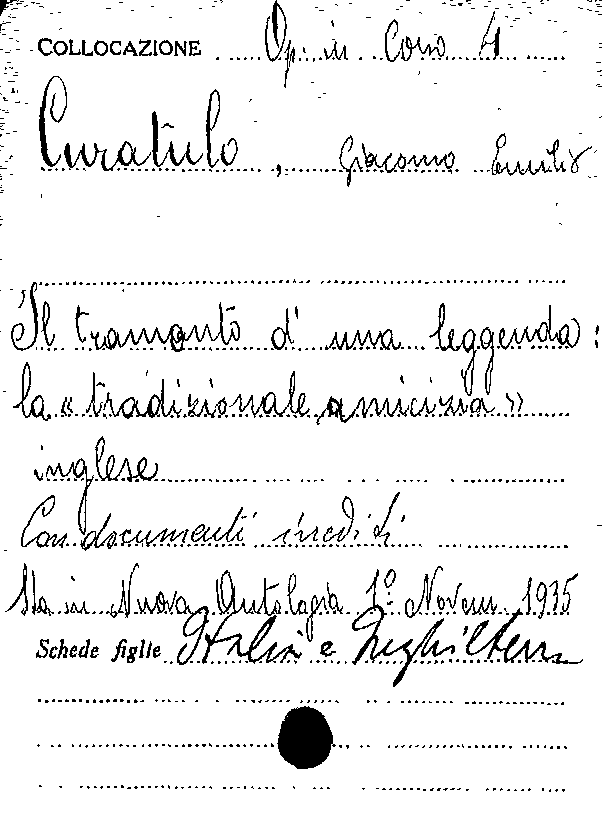 COLLOCAZIONE Op. in Corso 4
Curatulo, Giacomo Emilio
Il tramonto d'una leggenda:
la «tradizionale amicizia»
inglese
Con documenti inediti
Sta in Nuova Antologia 1º Novem 1935
Schede figlie Italia e Inghilterra